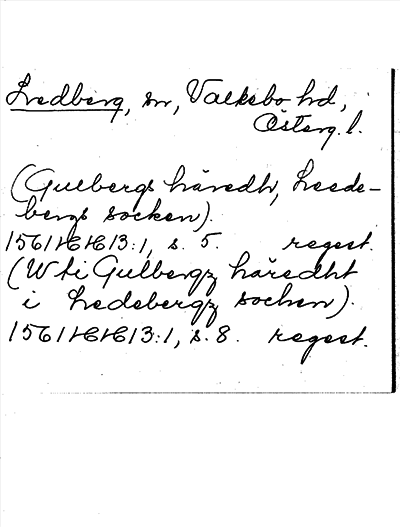 Ledberg, sn, Valkebo hd,
Österg. l.
(Gulbergs häredh, Leede-
bergs socken).
1561 HH 13:1, s. 5. regest.
(W ti Gulbergz häredht
i Ledebergz sochen).
1561 HH 13:1, s. 8. regest.